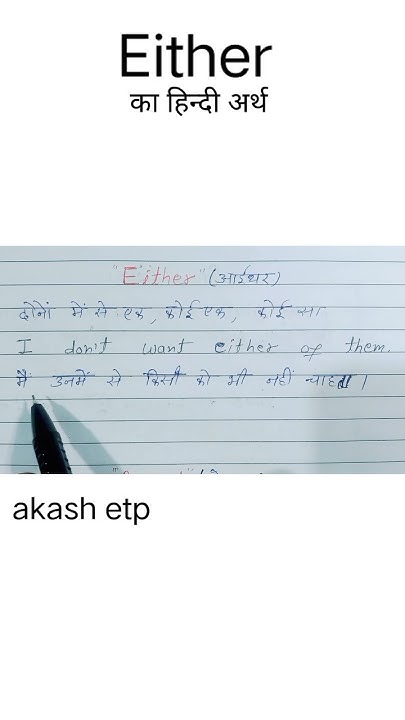 Either
का हिन्दी अर्थ
"Either" (आईथर)
दोनों में से एक, कोई एक, कोई सा
I don't want either of them.
मैं उनमें से किसी को भी नहीं चाहता।
akash etp